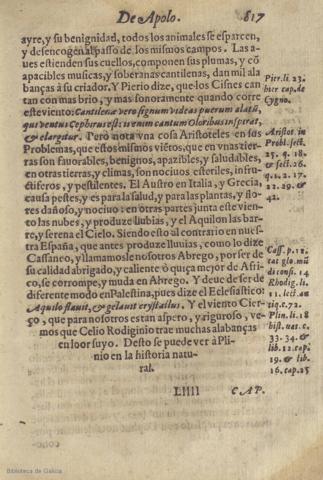 De Apolo. 617
ayre, y su benignidad, todos los animales se esparcen,
y desencogen al passo de los mismos campos. Las a-
ues estienden sus cuellos, componen sus plumas, y cõ
apacibles musicas, y soberanas cantilenas, dan mil ala
banças à su criador. Y Pierio dize, que los Cisnes can
tan con mas brio, y mas sonoramente quando corre
este viento: Cantilenæ vero signum videas puerum alatũ,
qui ventus Zephyrus est: is enim cantum Oloribus inspirat,
& elargitur. Però nota vna cosa Aristoteles en sus
Problemas, que estos mismos viẽtos, que en vnas tier-
ras son fauorables, benignos, apazibles, y saludables,
en otras tierras, y climas, son nociuos, esteriles, infru-
ctiferos, y pestilentes. El Austro en Italia, y Grecia,
causa pestes, y es para la salud, y para las plantas, y flo-
res dañoso, y nociuo: en otras partes junta este vien-
to las nubes, y produze lluuias, y el Aquilon las bar-
re, y serena el Cielo. Siendo esto al contrario en nues-
tra España, que antes produze lluuias, como lo dize
Cassaneo, y llamamosle nosotros Abrego, por ser de
su calidad abrigado, y caliente: ò quiça mejor de Afri-
co, se corrompe, y muda en Abrego. Y deue de ser de
diferente modo en Palestina, pues dize el Eclesiastico:
Aquilo flauit, & gelauit crystallus. Y el viento Cier-
ço, que para nosotros es tan aspero, y riguroso, ve-
mos que Celio Rodiginio trae muchas alabanças
en loor suyo. Desto se puede ver à Pli-
nio en la historia natu-
ral.
Pier. li. 23.
hier cap. de
Cygno.
Aristot. in
Probl. sect.
25. q. 18.
& sect. 26.
q. 1. 2. 17.
22. 29. &
42.
Cass. p. 12.
cat glo. mũ
di consi. 14
Rhodig. li.
11. lect. an
tiq. c. 72.
Plin. li. 18
hist. nat. c.
33. 34. &
lib. 12. cap.
19. & lib.
16. cap. 25
Llll CAP.
Biblioteca de Galicia